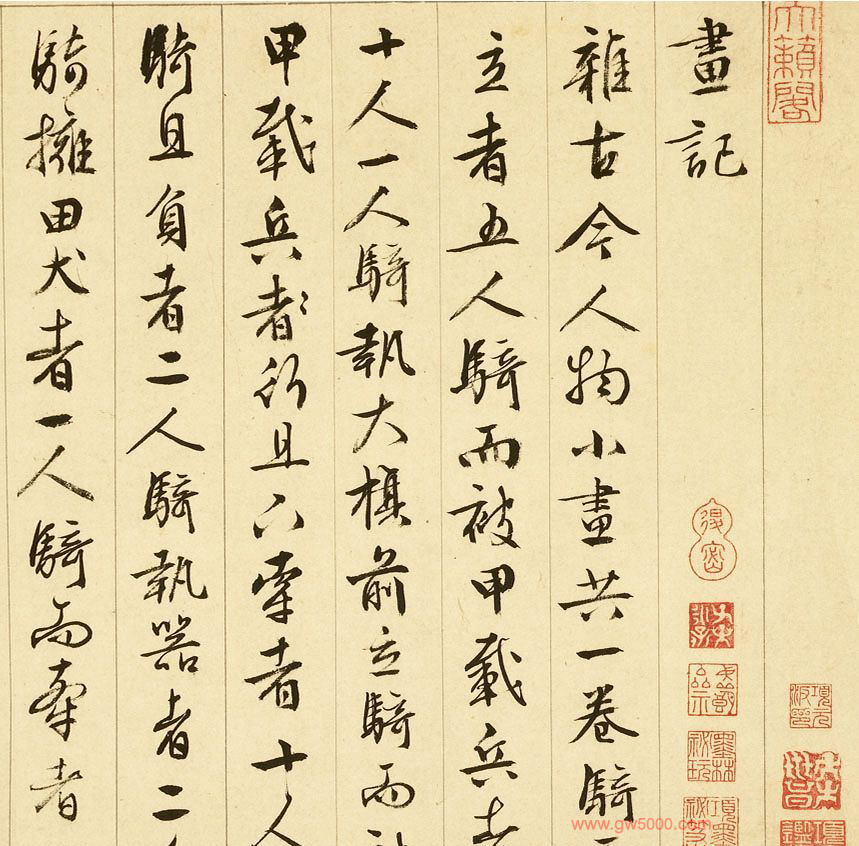 天籟閣
項元汴印
畫記
墨林祕玩
雜古今人物小畫共一卷騎
立者五人騎而被甲載兵
十人一人騎執大旗前立騎而
甲載兵者行且下牽者十人
騎且負者二人騎執器者二
騎擁田犬者一人騎而牽者
www.gw5000.com